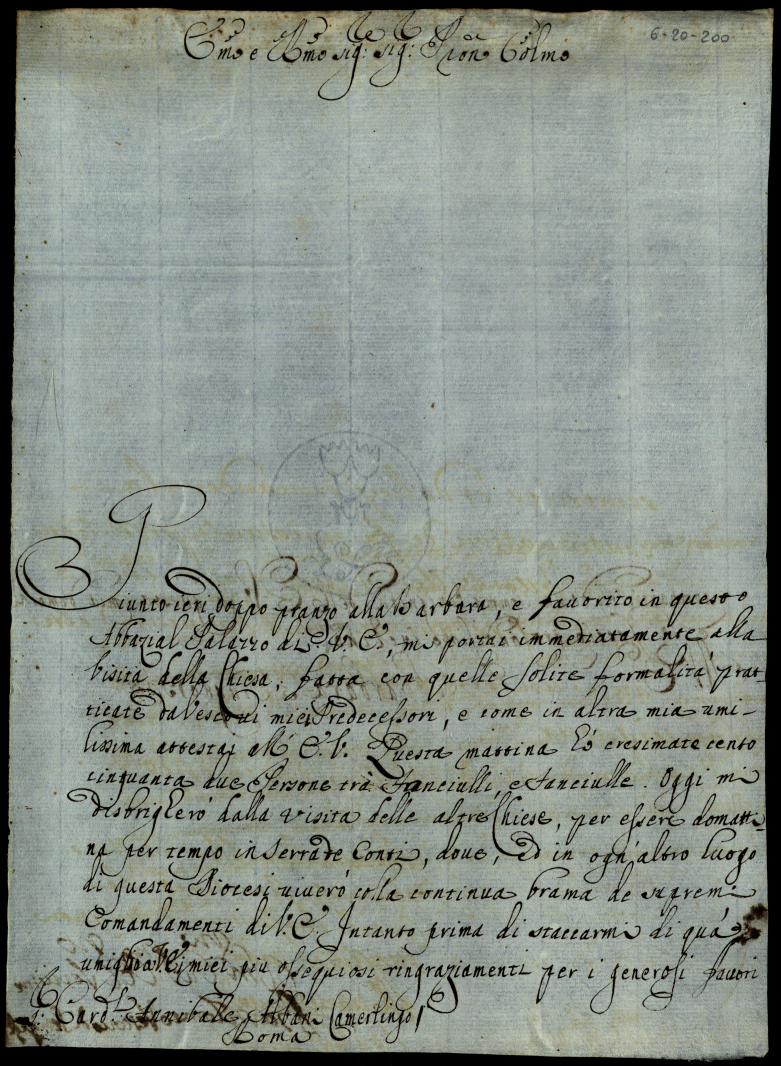 6-20-200
Em̃o e Rm̃o Sig: Sig: Pron Colmo
Giunto ieri doppo pranzo alla Barbara, e favorito in questo
Abbazial Palazzo di V. E., mi portai immediatamente alla
visita della Chiesa, fatta con quelle solite formalità prat-
ticate da Vescovi miei Predecessori, e come in altra mia umi-
lissima attestai all' E. V. Questa mattina hò cresimate cento
cinquanta due Persone trà Fanciulli, e Fanciulle. Oggi mi
disbrigherò dalla visita delle altre Chiese, per essere domatti-
na per tempo in Serra de Conti, dove, ed in ogn'altro luogo
di questa Diocesi viverò colla continua brama de supremi
Comandamenti di V. E. Intanto prima di staccarmi di quà
umiglio a V. E. i miei più ossequiosi ringraziamenti per i generosi favori
S: Card.le Annibale Albani Camerlingo
Roma